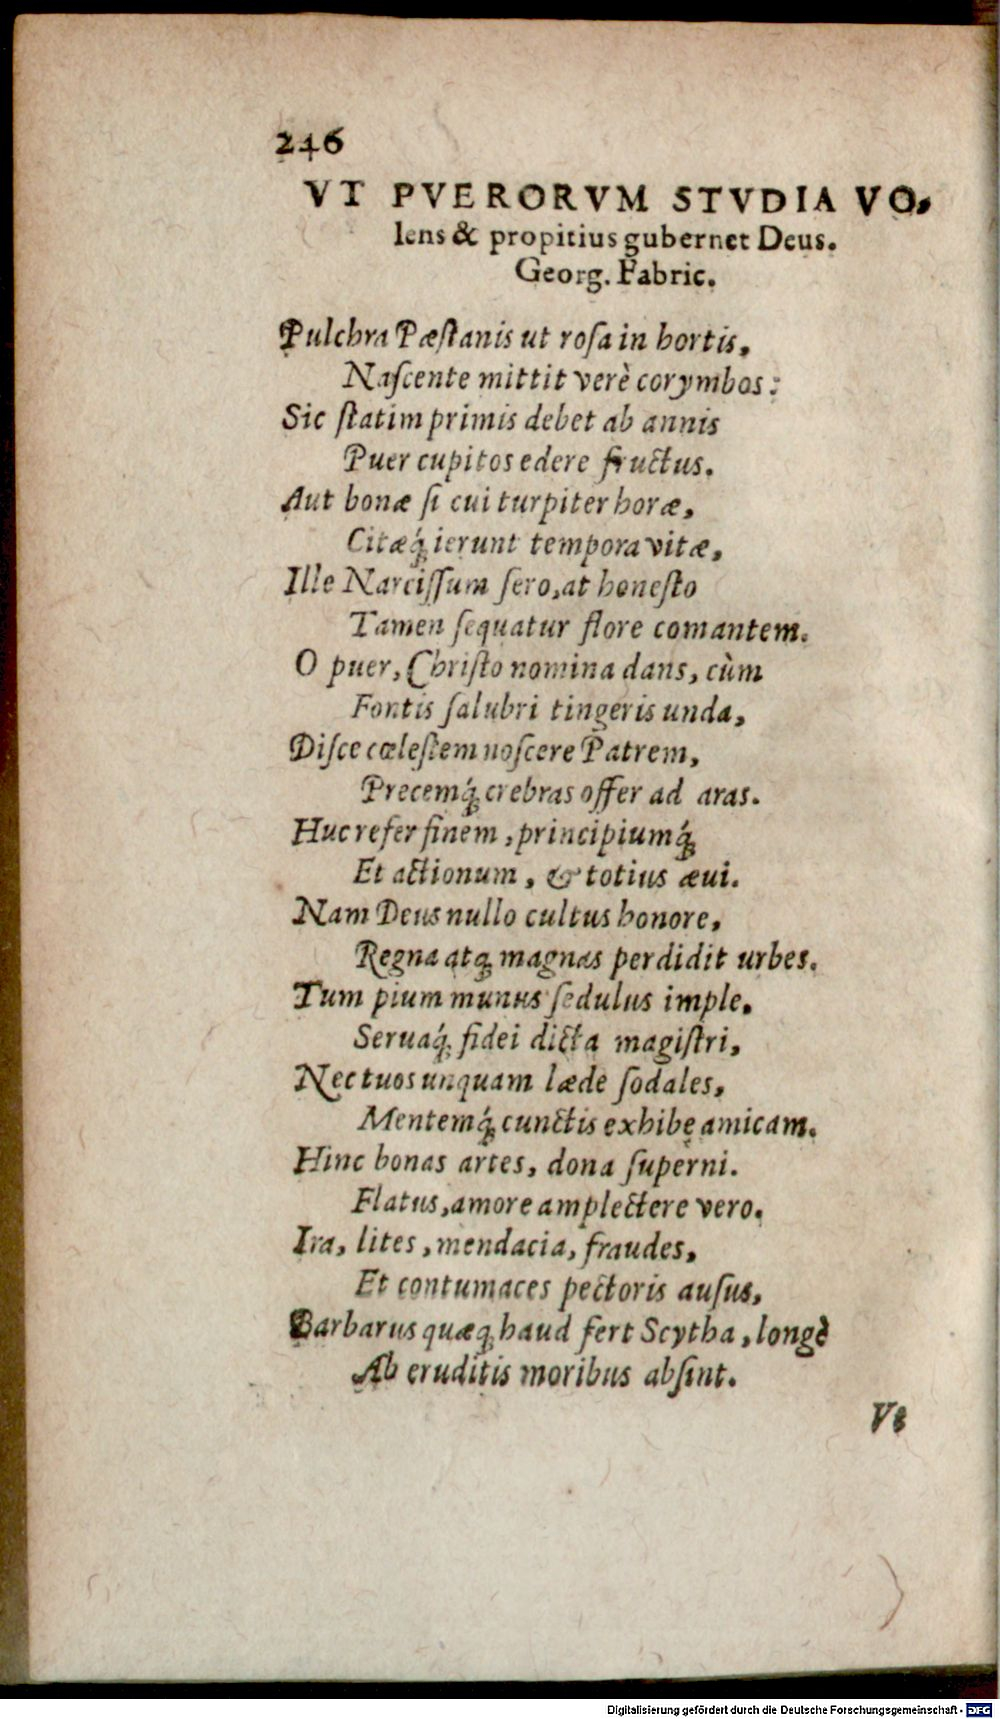 246
VT PVERORVM STVDIA VO,
lens & propitius gubernet Deus.
Georg. Fabric.
Pulchra Pæſtanis ut roſa in hortis,
Naſcente mittit verè corymbos:
Sic ſtatim primis debet ab annis
Puer cupitos edere fructus.
Aut bonæ ſi cui turpiter horæ,
Citæq́; ierunt tempora vitæ,
Ille Narciſſum ſero, at honeſto
Tamen ſequatur flore comantem.
O puer, Chriſto nomina dans, cùm
Fontis ſalubri tingeris unda,
Diſce cœleſtem noſcere Patrem,
Precemq́; crebras offer ad aras.
Huc refer finem, principiumq́;
Et actionum, & totius æui.
Nam Deus nullo cultus honore,
Regna atq; magnas perdidit urbes.
Tum pium munus ſedulus imple.
Seruaq́; fidei dicta magiſtri,
Nec tuos unquam læde ſodales,
Mentemq́; cunctis exhibe amicam.
Hinc bonas artes, dona ſuperni.
Flatus, amore amplectere vero.
Ira, lites, mendacia, fraudes,
Et contumaces pectoris auſus,
Barbarus quæq; haud fert Scytha, longè
Ab eruditis moribus abſint.
Vt
Digitalisierung gefördert durch die Deutsche Forschungsgemeinschaft - DFG